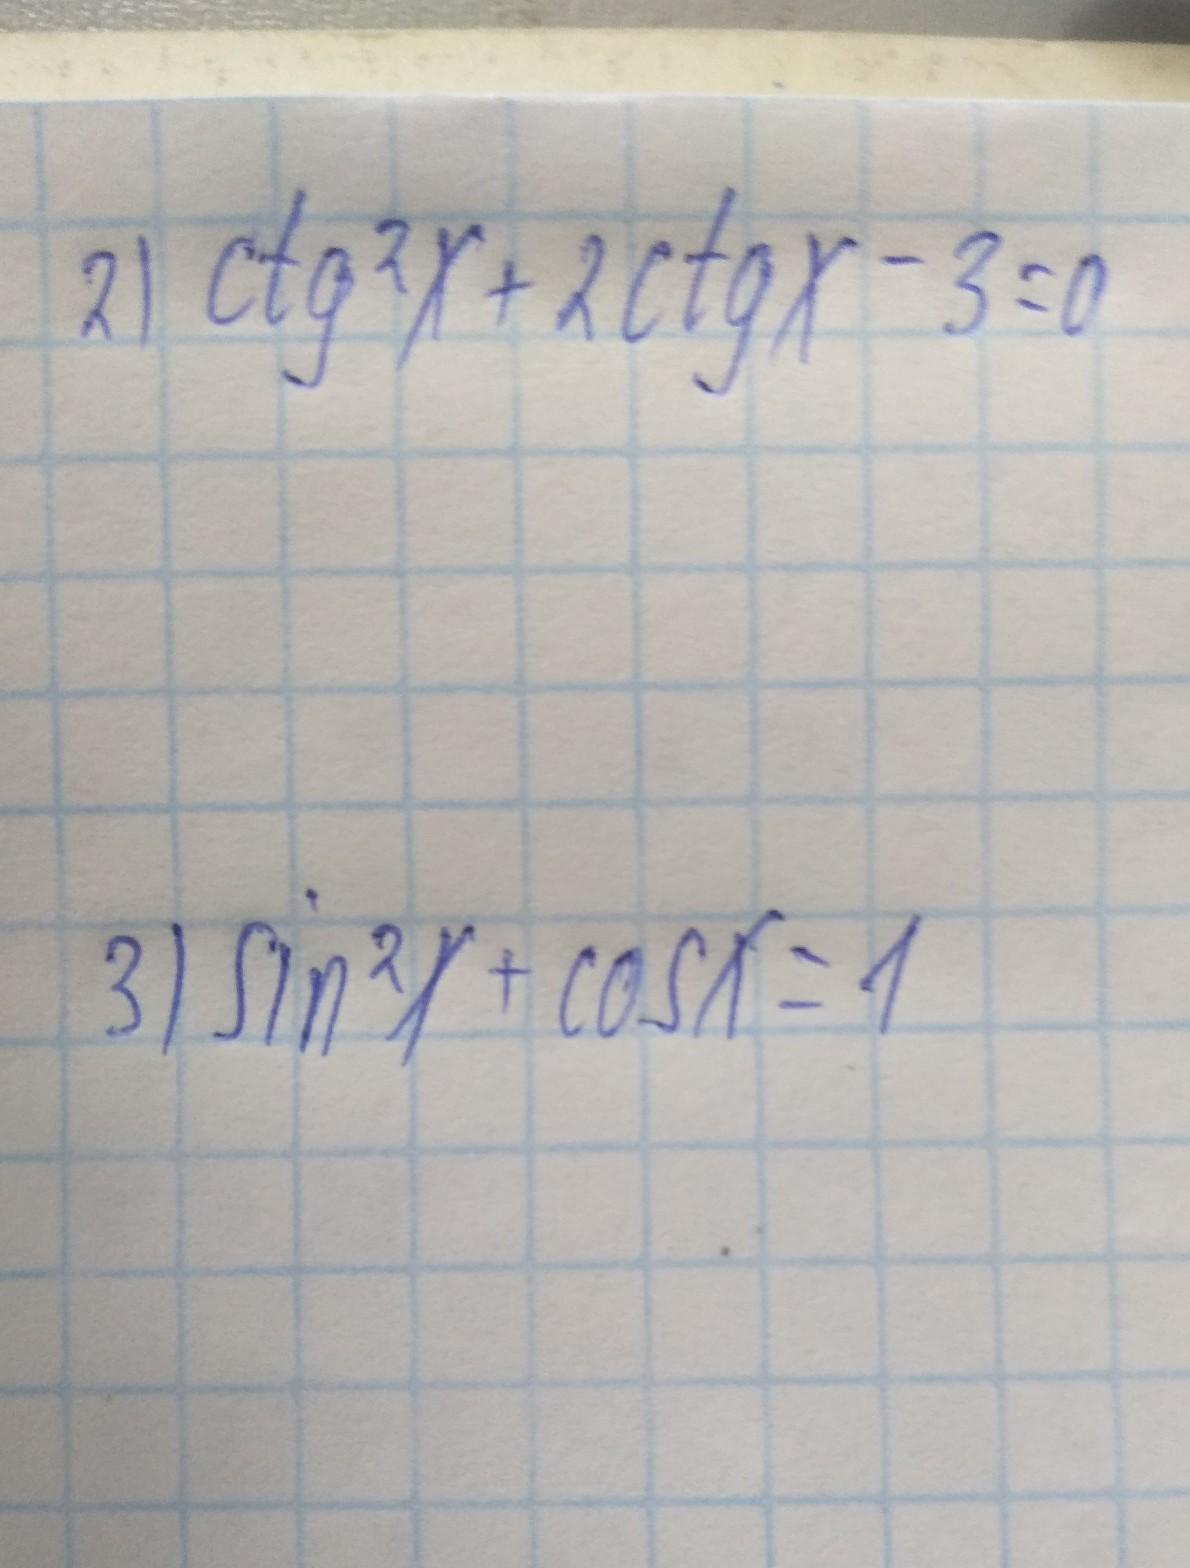 2) ctg²x + 2ctgx - 3 = 0
3) sin²x + cosx = 1